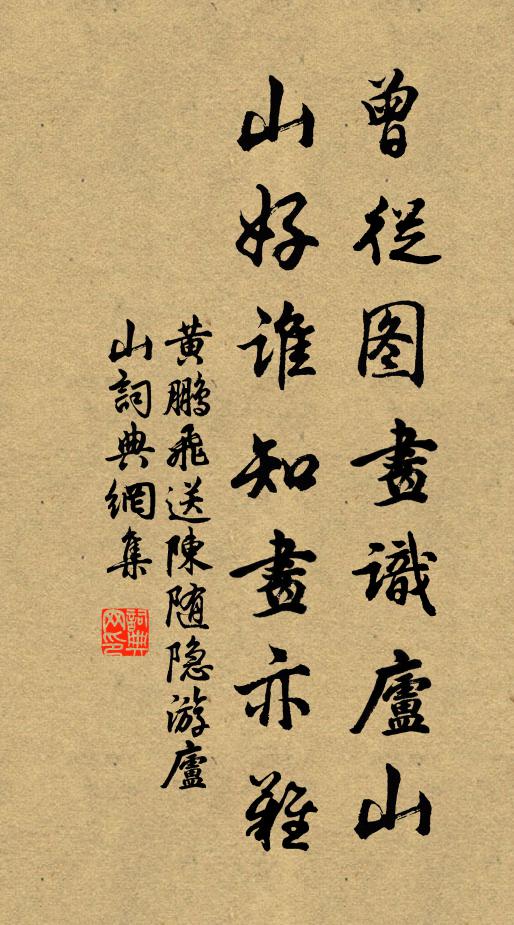 曾從图畫識廬山
山好誰知畫亦難
黃鵬飛送陳随隐游廬
山詞典網集
詞典网印